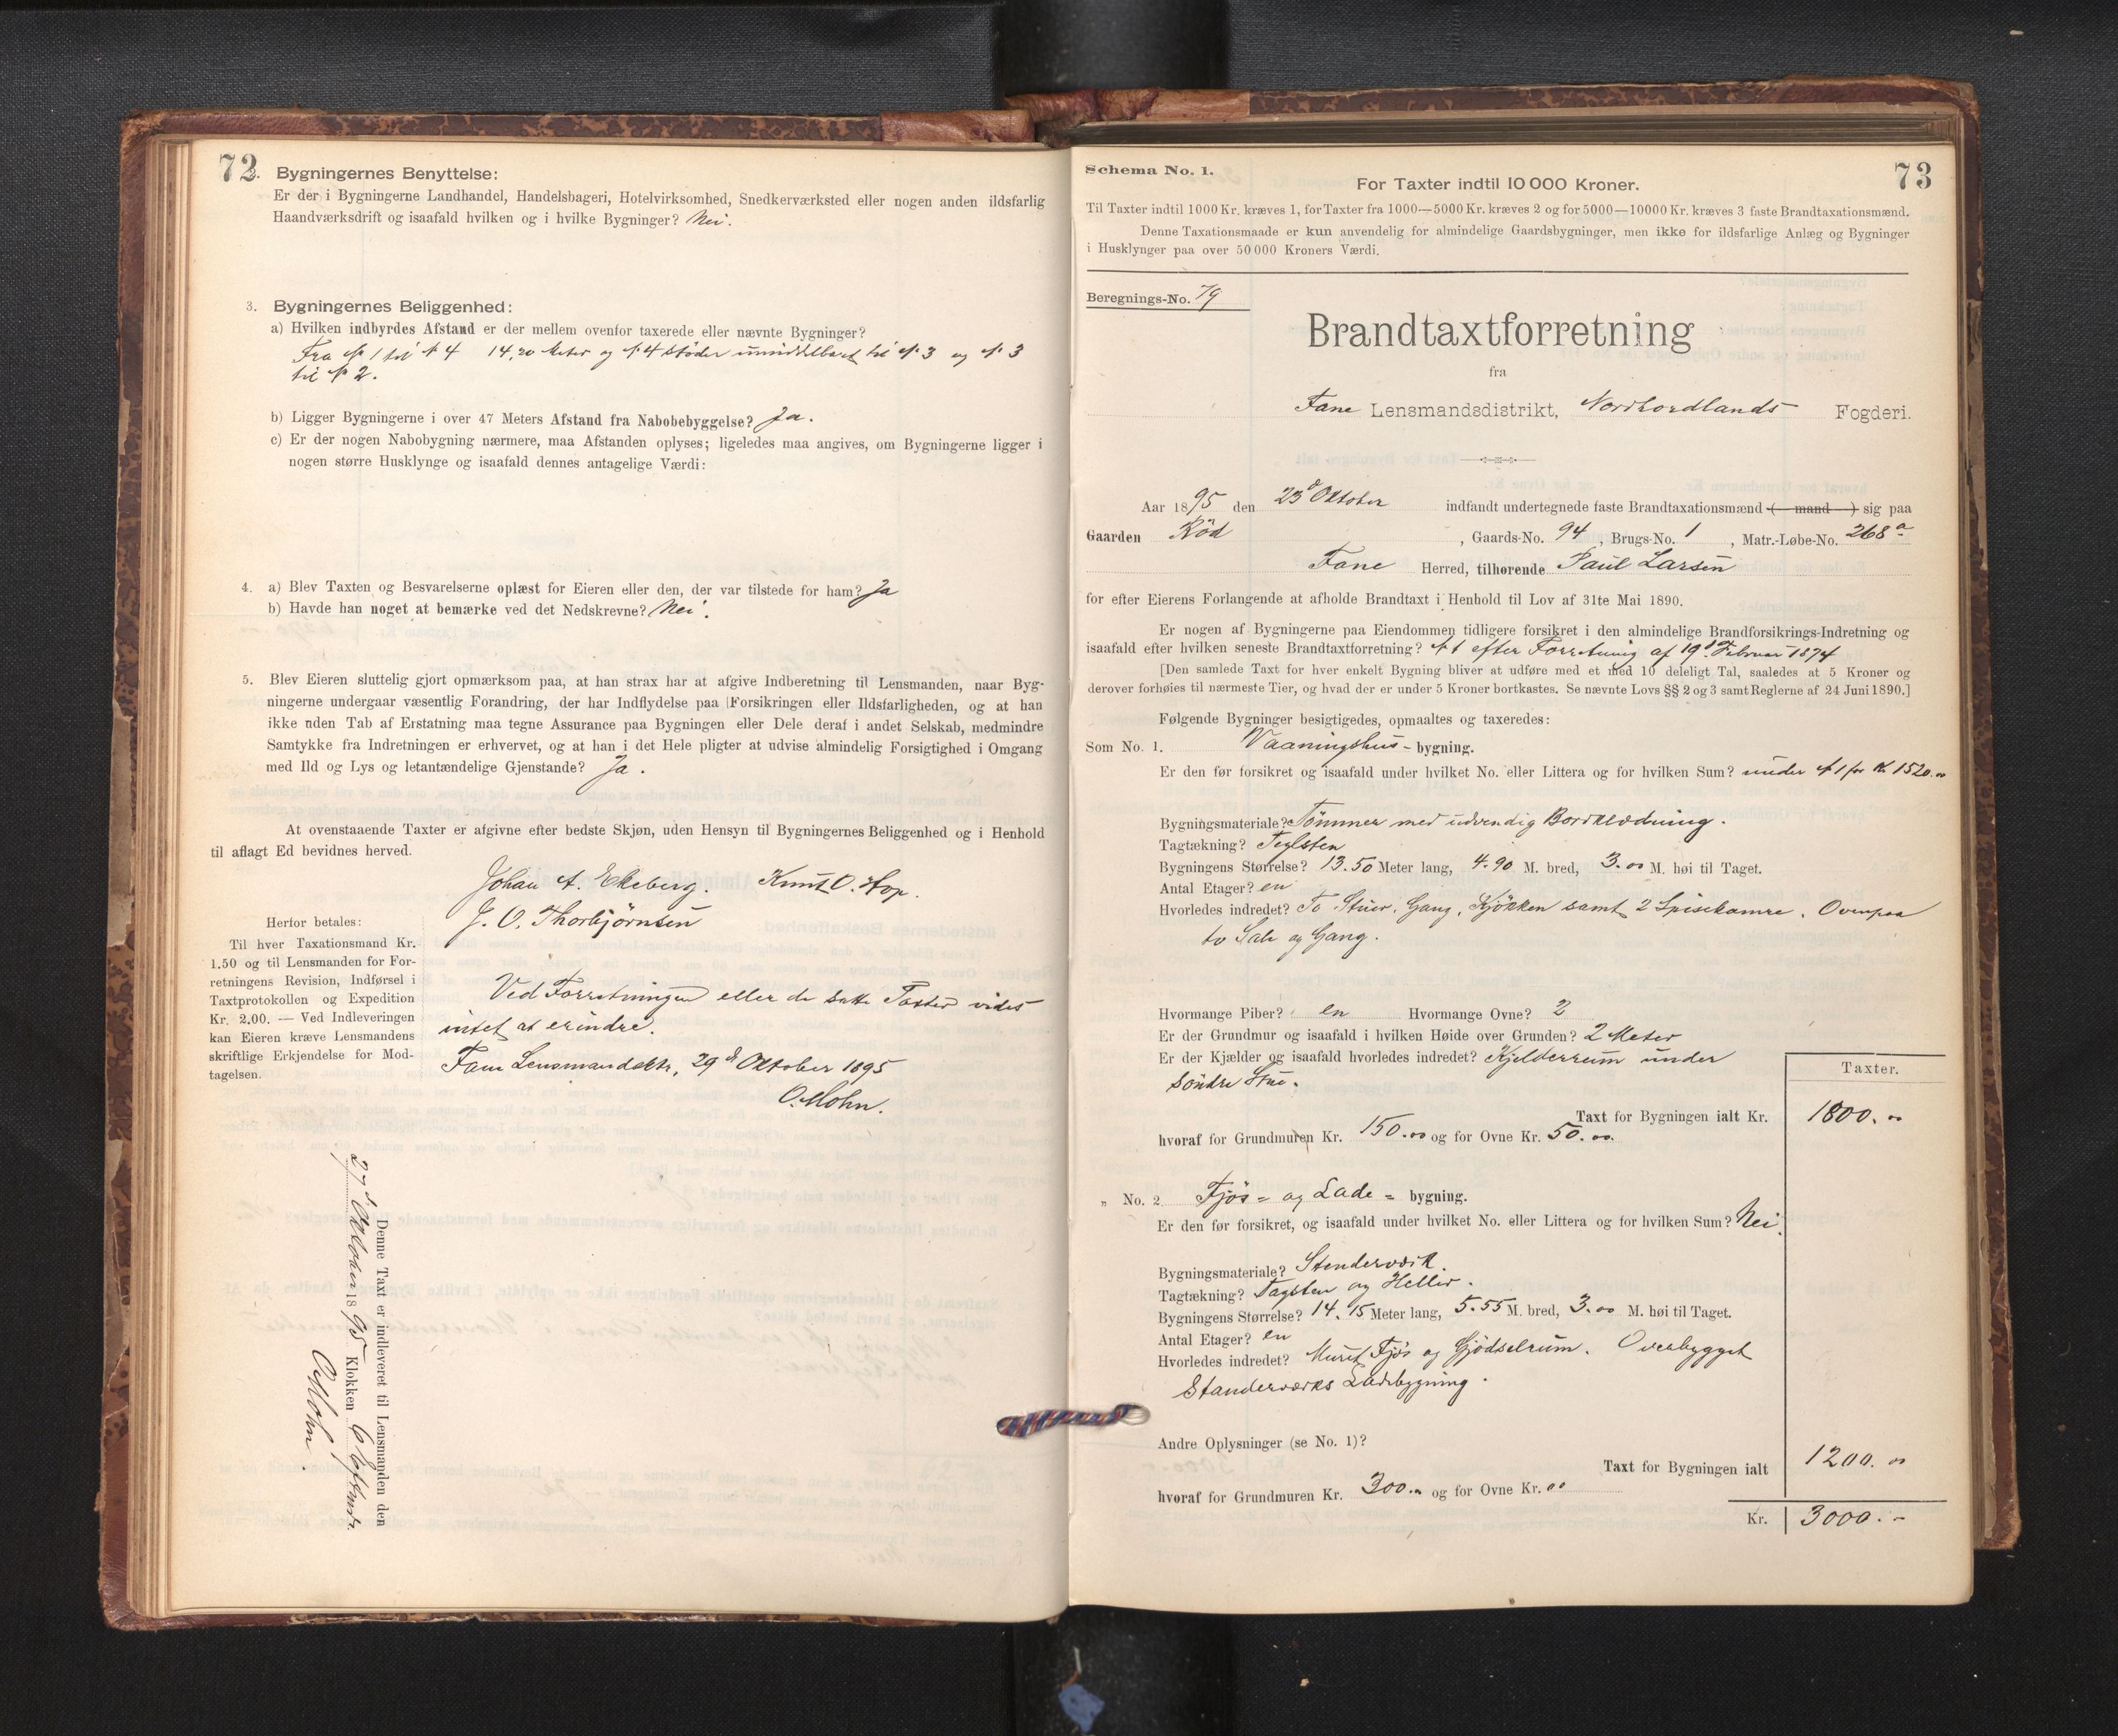 72.
Bygningernes Benyttelse:
Er der i Bygningerne Landhandel, Handelsbageri, Hotelvirksomhed, Snedkerværksted eller nogen anden ildsfarlig
Haandværksdrift og isaafald hvilken og i hvilke Bygninger? Nei.
3. Bygningernes Beliggenhed:
a) Hvilken indbyrdes Afstand er der mellem ovenfor taxerede eller nævnte Bygninger?
Fra № 1 til № 4 14,20 Meter og № 4 støder umiddelbart til № 3 og № 3
til № 2.
b) Ligger Bygningerne i over 47 Meters Afstand fra Nabobebyggelse? Ja.
c) Er der nogen Nabobygning nærmere, maa Afstanden oplyses; ligeledes maa angives, om Bygningerne ligger i
nogen større Husklynge og isaafald dennes antagelige Værdi:
4. a) Blev Taxten og Besvarelserne oplæst for Eieren eller den, der var tilstede for ham? Ja
b) Havde han noget at bemærke ved det Nedskrevne? Nei.
5. Blev Eieren sluttelig gjort opmærksom paa, at han strax har at afgive Indberetning til Lensmanden, naar Byg-
ningerne undergaar væsentlig Forandring, der har Indflydelse paa Forsikringen eller Ildsfarligheden, og at han
ikke uden Tab af Erstatning maa tegne Assurance paa Bygningen eller Dele deraf i andet Selskab, medmindre
Samtykke fra Indretningen er erhvervet, og at han i det Hele pligter at udvise almindelig Forsigtighed i Omgang
med Ild og Lys og letantændelige Gjenstande? Ja.
At ovenstaaende Taxter er afgivne efter bedste Skjøn, uden Hensyn til Bygningernes Beliggenhed og i Henhold
til aflagt Ed bevidnes herved.
Johan A. Ekeberg. Knut O. Hop.
J. O. Thorbjörnsen
Herfor betales:
Til hver Taxationsmand Kr.
1.50 og til Lensmanden for For-
retningens Revision, Indførsel i
Taxtprotokollen og Expedition
Kr. 2.00. — Ved Indleveringen
kan Eieren kræve Lensmandens
skriftlige Erkjendelse for Mod-
tagelsen.
Ved Forretningen eller de satte Taxter vides
intet at erindre.
Fane Lensmandsktr, 29d Oktober 1895
O. Mohn.
Denne Taxt er indleveret til Lensmanden den
27d Oktober 1895 Klokken 6 Eftmdr.
O. Mohn.
Schema No. 1.
73
For Taxter indtil 10 000 Kroner.
Til Taxter indtil 1000 Kr. kræves 1, for Taxter fra 1000—5000 Kr. kræves 2 og for 5000—10000 Kr. kræves 3 faste Brandtaxationsmænd.
Denne Taxationsmaade er kun anvendelig for almindelige Gaardsbygninger, men ikke for ildsfarlige Anlæg og Bygninger
i Husklynger paa over 50 000 Kroners Værdi.
Beregnings-No. 79
Brandtaxtforretning
fra
Fane Lensmandsdistrikt, Nordhordlands Fogderi.
Aar 1895 den 23d Oktober indfandt undertegnede faste Brandtaxationsmænd ( mand ) sig paa
Gaarden Röd, Gaards-No. 94, Brugs-No. 1, Matr.-Løbe-No. 268a
Fane Herred, tilhørende Paul Larsen
for efter Eierens Forlangende at afholde Brandtaxt i Henhold til Lov af 31te Mai 1890.
Er nogen af Bygningerne paa Eiendommen tidligere forsikret i den almindelige Brandforsikrings-Indretning og
isaafald efter hvilken seneste Brandtaxtforretning? № 1 efter Forretning af 19d Februar 1874
[Den samlede Taxt for hver enkelt Bygning bliver at udføre med et med 10 deleligt Tal, saaledes at 5 Kroner og
derover forhøies til nærmeste Tier, og hvad der er under 5 Kroner bortkastes. Se nævnte Lovs §§ 2 og 3 samt Reglerne af 24 Juni 1890.]
Følgende Bygninger besigtigedes, opmaaltes og taxeredes:
Som No. 1. Vaaningshus-bygning.
Er den før forsikret og isaafald under hvilket No. eller Littera og for hvilken Sum? under № 1 for Kr 1520.00
Bygningsmateriale? Tömmer med udvendig Bordklædning.
Tagtækning? Teglsten
Bygningens Størrelse? 13.50 Meter lang, 4.90 M. bred, 3.00 M. høi til Taget.
Antal Etager? en
Hvorledes indredet? To Stuer, Gang, Kjökken samt 2 Spisekamre. Ovenpaa
to Sale og Gang.
Hvormange Piber? en Hvormange Ovne? 2
Er der Grundmur og isaafald i hvilken Høide over Grunden? 2 Meter
Er der Kjælder og isaafald hvorledes indredet? Kjelderrum under
söndre Stue.
Taxter.
Taxt for Bygningen ialt Kr. 1800.00
hvoraf for Grundmuren Kr. 150.00 og for Ovne Kr. 50.00.
„ No. 2 Fjös- og Lade- bygning.
Er den før forsikret, og isaafald under hvilket No. eller Littera og for hvilken Sum? Nei.
Bygningsmateriale? Stenderværk.
Tagtækning? Tagsten og Heller.
Bygningens Størrelse? 14.15 Meter lang, 5.55 M. bred, 3.00 M. høi til Taget.
Antal Etager? en
Hvorledes indredet? Muret Fjös og Gjödselrum. Overbygget
Standerværks Ladebygning.
Andre Oplysninger (se No. 1)?
Taxt for Bygningen ialt 1200.00
hvoraf for Grundmuren Kr. 300.00 og for Ovne Kr. 00
Kr. 3000.-